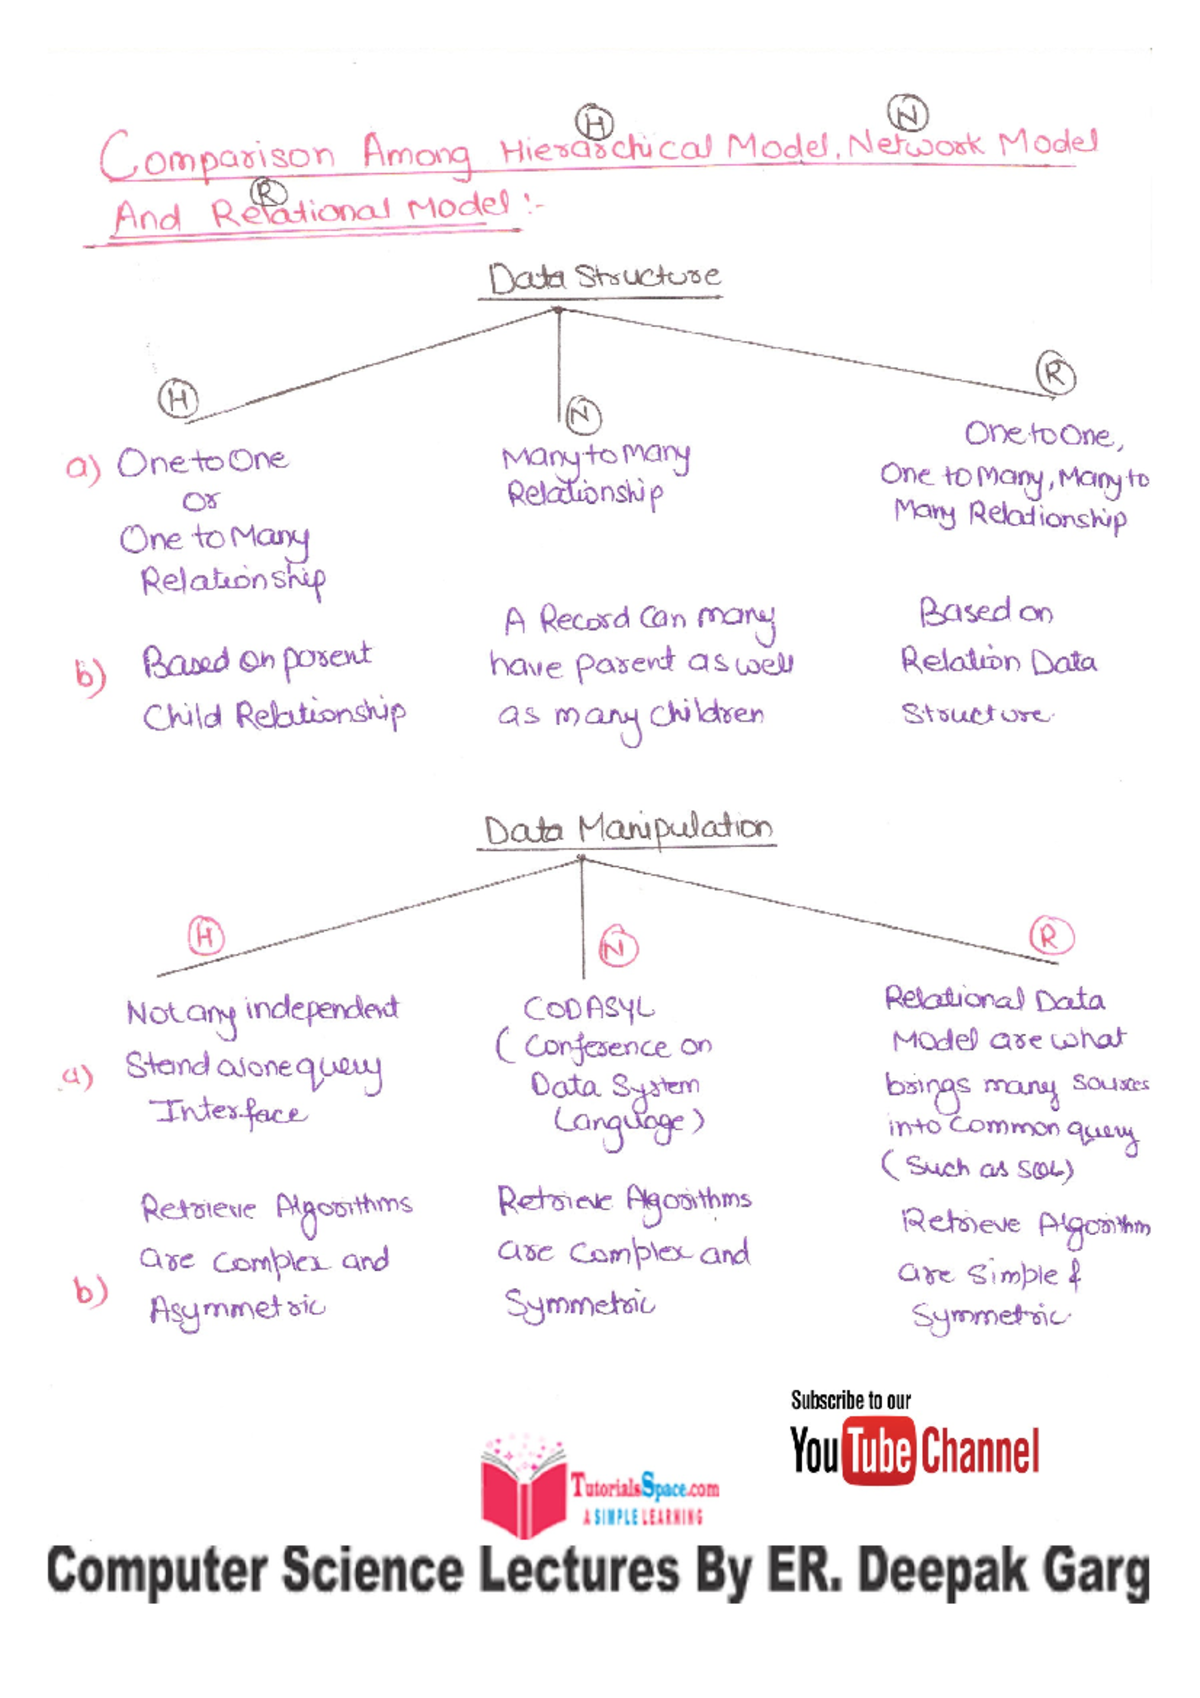 H
N
Comparison Among Hierarchical Model, Network Model
R
And Relational Model :-
Data Structure
H
N
R
a) One to One
Or
One to Many
Relationship
Many to many
Relationship
One to One,
One to Many, Many to
Many Relationship
b) Based on parent
Child Relationship
A Record Can many
have parent as well
as many children
Based on
Relation Data
Structure.
Data Manipulation
H
N
R
a) Not any independent
Stand alone query
Interface
CODASYL
(Conference on
Data System
Language)
Relational Data
Model are what
brings many sources
into common query
(Such as SQL)
b) Retrieve Algorithms
are Complex and
Asymmetric
Retrieve Algorithms
are Complex and
Symmetric
Retrieve Algorithm
are Simple &
Symmetric.
Subscribe to our
YouTube Channel
TutorialsSpace.com
A SIMPLE LEARNING
Computer Science Lectures By ER. Deepak Garg